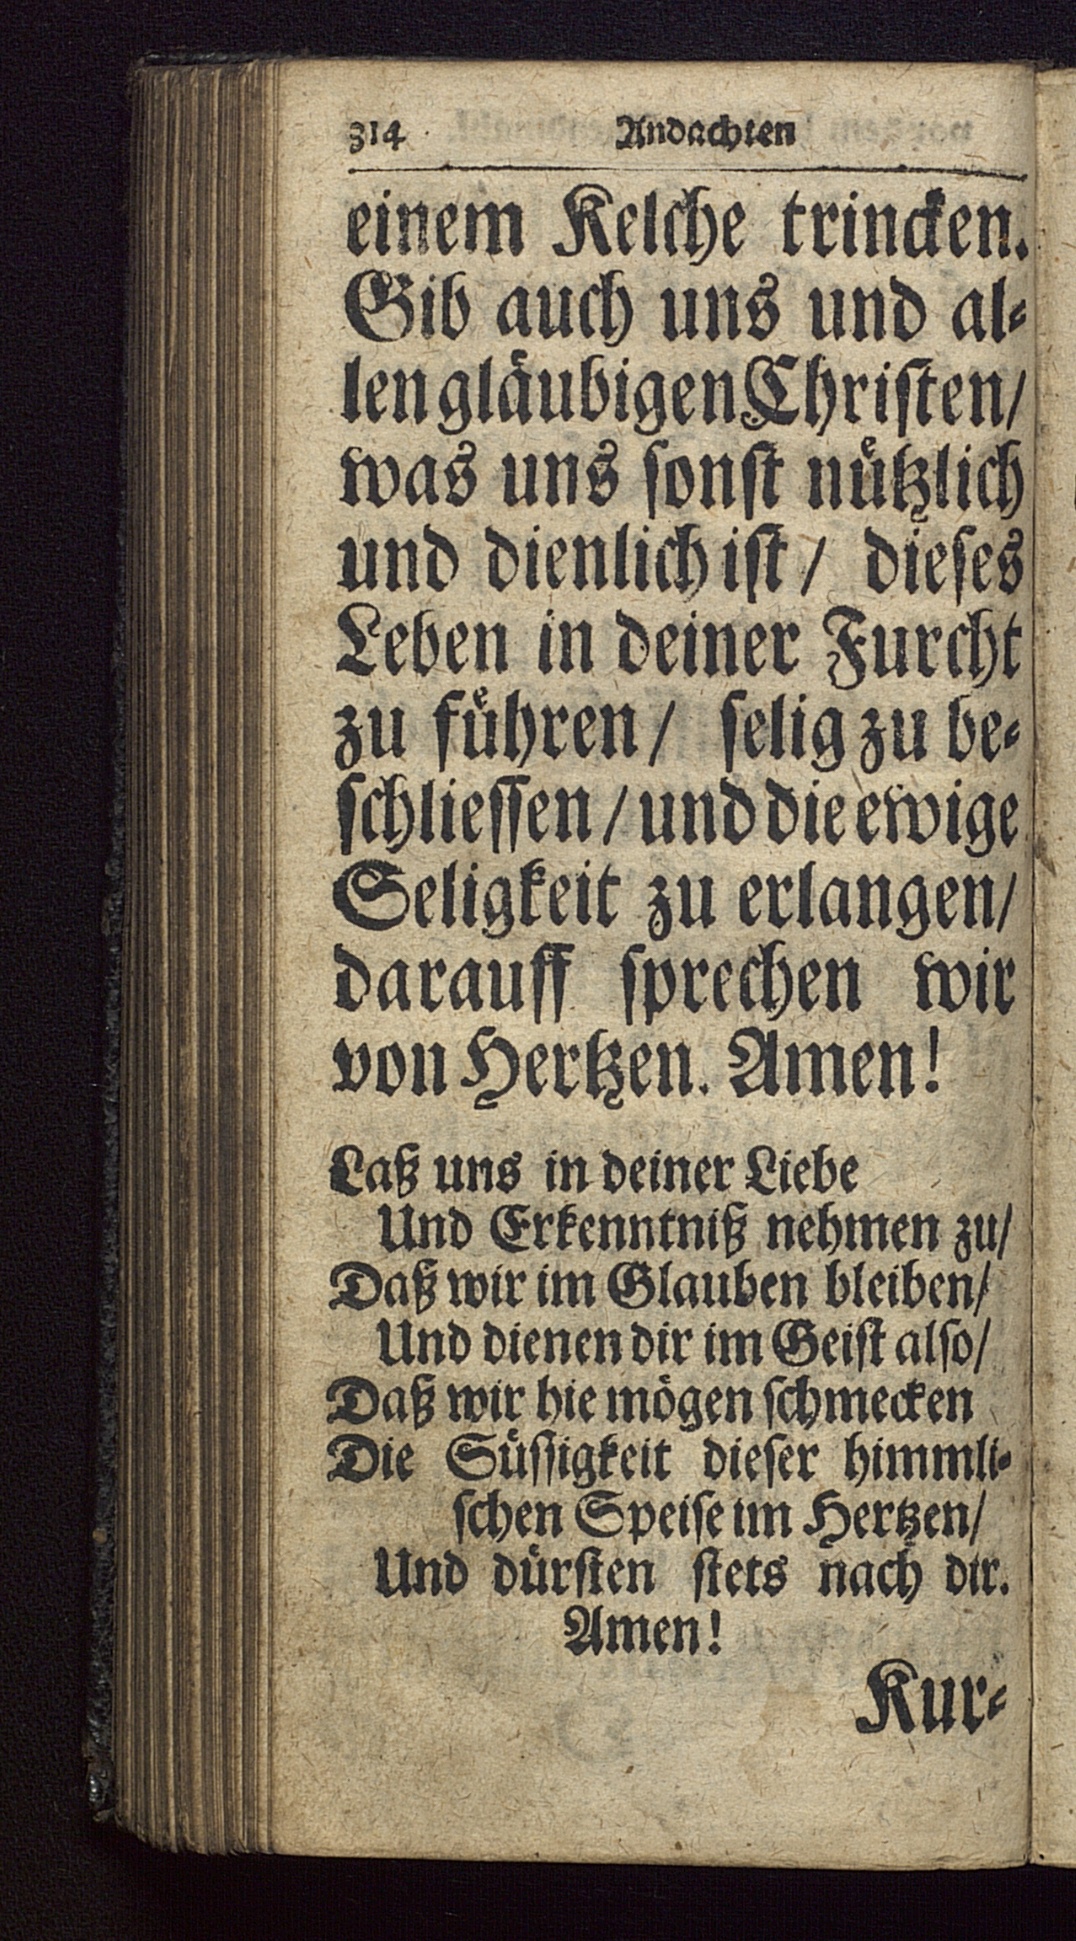 314 Andachten
einem Kelche trincken.
Gib auch uns und al-
len gläubigen Christen/
was uns sonst nützlich
und dienlich ist/ dieses
Leben in deiner Furcht
zu führen/ selig zu be-
schliessen/ und die ewige
Seligkeit zu erlangen/
darauff sprechen wir
von Hertzen. Amen!
Laß uns in deiner Liebe
Und Erkenntniß nehmen zu/
Daß wir im Glauben bleiben/
Und dienen dir im Geist also/
Daß wir hie mögen schmecken
Die Süssigkeit dieser himmli-
schen Speise im Hertzen/
Und dürsten stets nach dir.
Amen!
Kur-